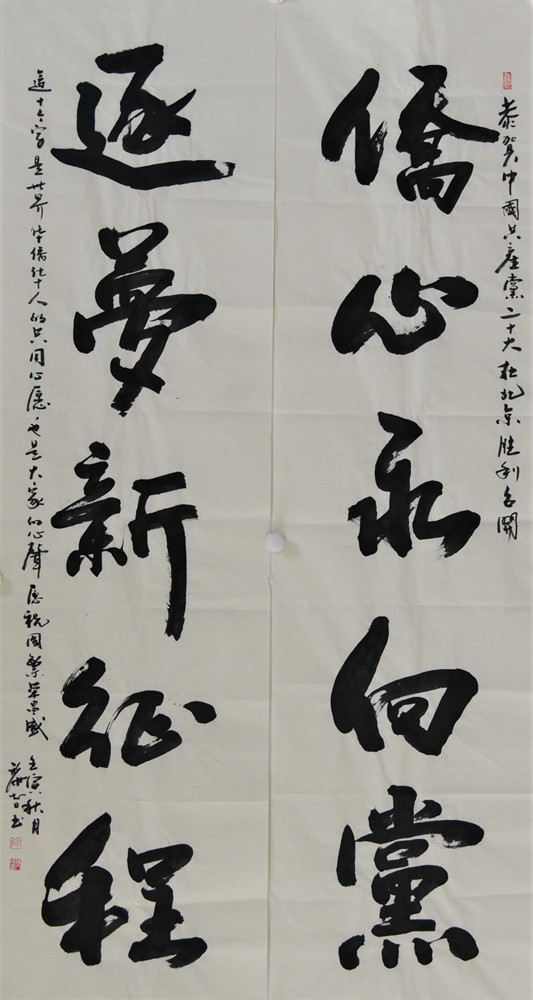 恭賀中國共產黨二十大在北京胜利召開
僑心永向黨
逐夢新征程
這十字是世界華僑人的共同心愿也是大家的心聲愿祝國繁榮昌盛
壬寅秋月
书